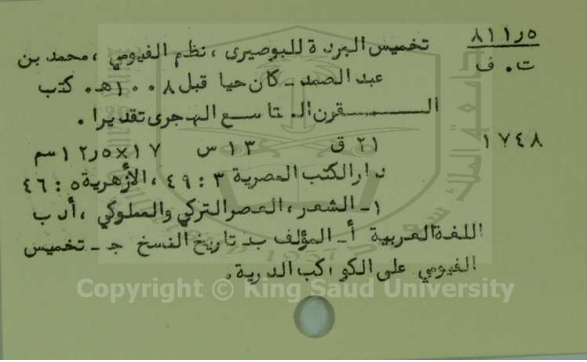 ٨١١ر٥ تخميس البردة للبوصيرى ، نظم الفيومي ، محمد بن
ت . ف عبد الصمد - كان حيا قبل ١٠٠٨هـ . كتب
القرن التاسع الهجرى تقديرا .
١٧٤٨ ٢١ ق ١٣ س ١٧×١٢ر٥ سم
دار الكتب المصرية ٣ : ٤٩ ، الأزهرية ٥ : ٤٦
١- الشعر ، العصر التركي والمملوكي ، أدب
اللغة العربية أ- المؤلف ب- تاريخ النسخ ج - تخميس
الفيومي على الكواكب الدرية .
Copyright © King Saud University